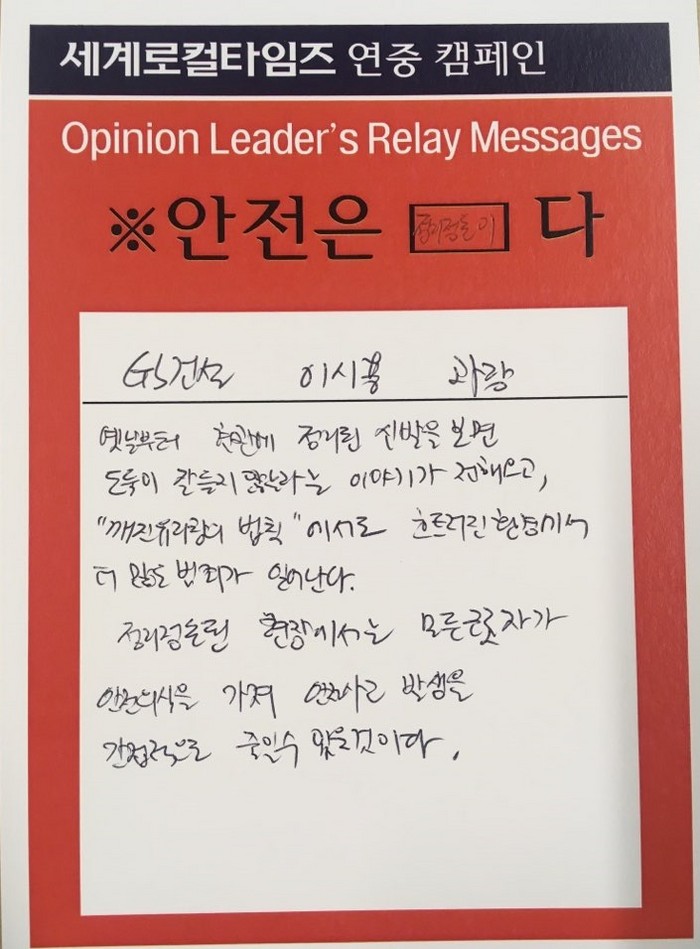 세계로컬타임즈 연중 캠페인
Opinion Leader's Relay Messages
※안전은 정리정돈이 다
GS건설 이시홍 과장
옛날부터 현관에 정리된 신발을 보면
도둑이 칼들지 않는다는 이야기가 전해오고,
"깨진유리창의 법칙"에서도 흐트러린 환경에서
더 많은 범죄가 일어난다.
정리정돈된 현장에서는 모든근로자가
안전의식을 가져 안전사고 발생을
간접적으로 줄일수 있을것이다.